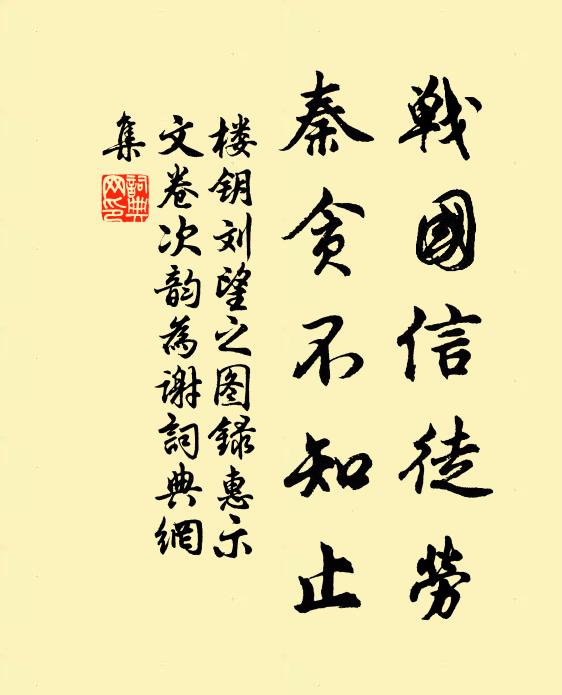 戦國信徒勞
秦貪不知止
楼钥刘望之图録惠示
文卷次韵為谢詞典網
集
詞典
网印